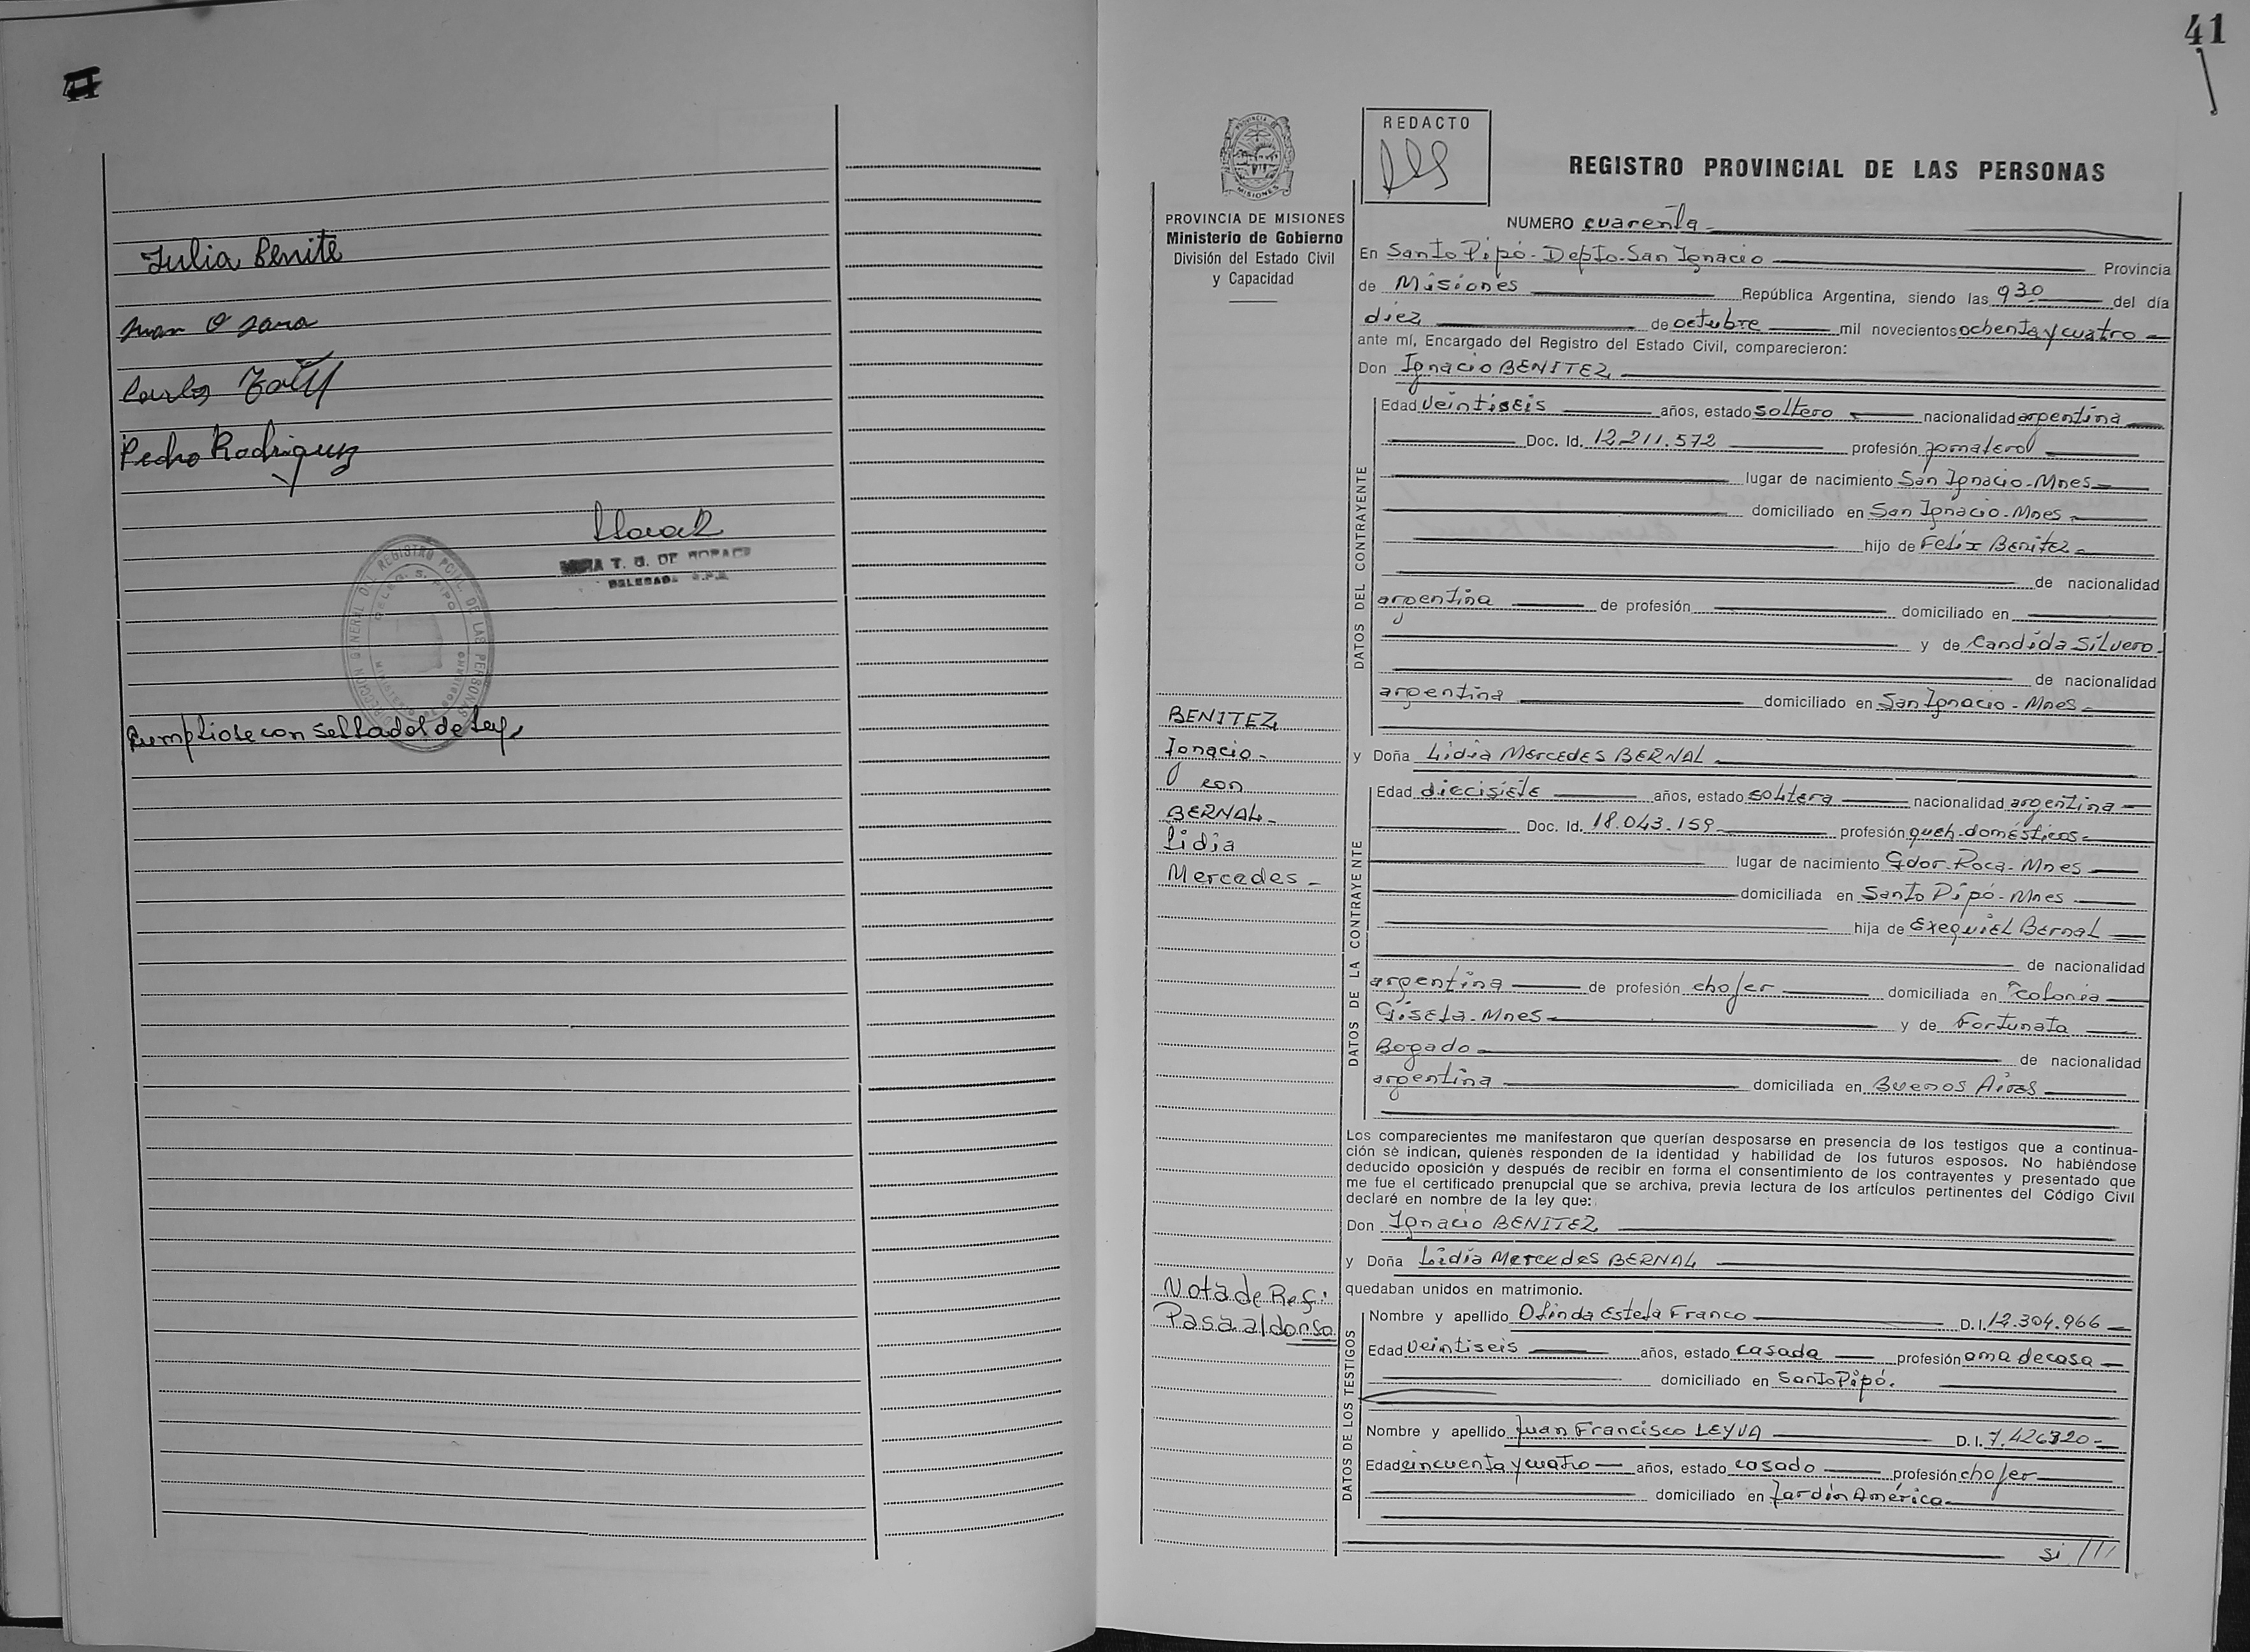 Julia Benite
Juan O Jara
Carlos
Pedro Rodriguez
T. G. DE
DELEGADA R.P.P.
DIRECCION GENERAL DEL REGISTRO PCIAL. DE LAS PERSONAS
Cumpliose con sellados de Ley,
41
REDACTO
REGISTRO PROVINCIAL DE LAS PERSONAS
PROVINCIA DE MISIONES
Ministerio de Gobierno
División del Estado Civil
y Capacidad
NUMERO cuarenta
En Santo Pipó - Depto. San Ignacio Provincia
de Misiones República Argentina, siendo las 930 del día
diez de octubre mil novecientos ochenta y cuatro
ante mí, Encargado del Registro del Estado Civil, comparecieron:
Don Ignacio BENITEZ
DATOS DEL CONTRAYENTE
Edad veintiseis años, estado soltero nacionalidad argentina
Doc. Id. 12.211.572 profesión jornalero
lugar de nacimiento San Ignacio - Mnes
domiciliado en San Ignacio - Mnes
hijo de Felix Benitez
de nacionalidad
argentina de profesión domiciliado en
y de Candida Silvero
de nacionalidad
argentina domiciliado en San Ignacio - Mnes
BENITEZ
Ignacio
con
BERNAL
Lidia
Mercedes
y Doña Lidia Mercedes BERNAL
DATOS DE LA CONTRAYENTE
Edad diecisiete años, estado soltera nacionalidad argentina
Doc. Id. 18.043.159 profesión queh. domésticos
lugar de nacimiento Gdor. Roca - Mnes
domiciliada en Santo Pipó - Mnes
hija de Exequiel Bernal
de nacionalidad
argentina de profesión chofer domiciliada en Colonia
Gisela - Mnes y de Fortunata
Bogado de nacionalidad
argentina domiciliada en Buenos Aires
Los comparecientes me manifestaron que querían desposarse en presencia de los testigos que a continua-
ción se indican, quienes responden de la identidad y habilidad de los futuros esposos. No habiéndose
deducido oposición y después de recibir en forma el consentimiento de los contrayentes y presentado que
me fue el certificado prenupcial que se archiva, previa lectura de los artículos pertinentes del Código Civil
declaré en nombre de la ley que:
Don Ignacio BENITEZ
y Doña Lidia Mercedes BERNAL
quedaban unidos en matrimonio.
Nota de Ref:
Pasa al dorso
DATOS DE LOS TESTIGOS
Nombre y apellido Olinda Estela Franco D.I. 12.304.966
Edad veintiseis años, estado casada profesión ama de casa
domiciliado en Santo Pipó.
Nombre y apellido Juan Francisco LEYVA D.I. 7.426320
Edad cincuenta y cuatro años, estado casado profesión chofer
domiciliado en Jardín América
si ///